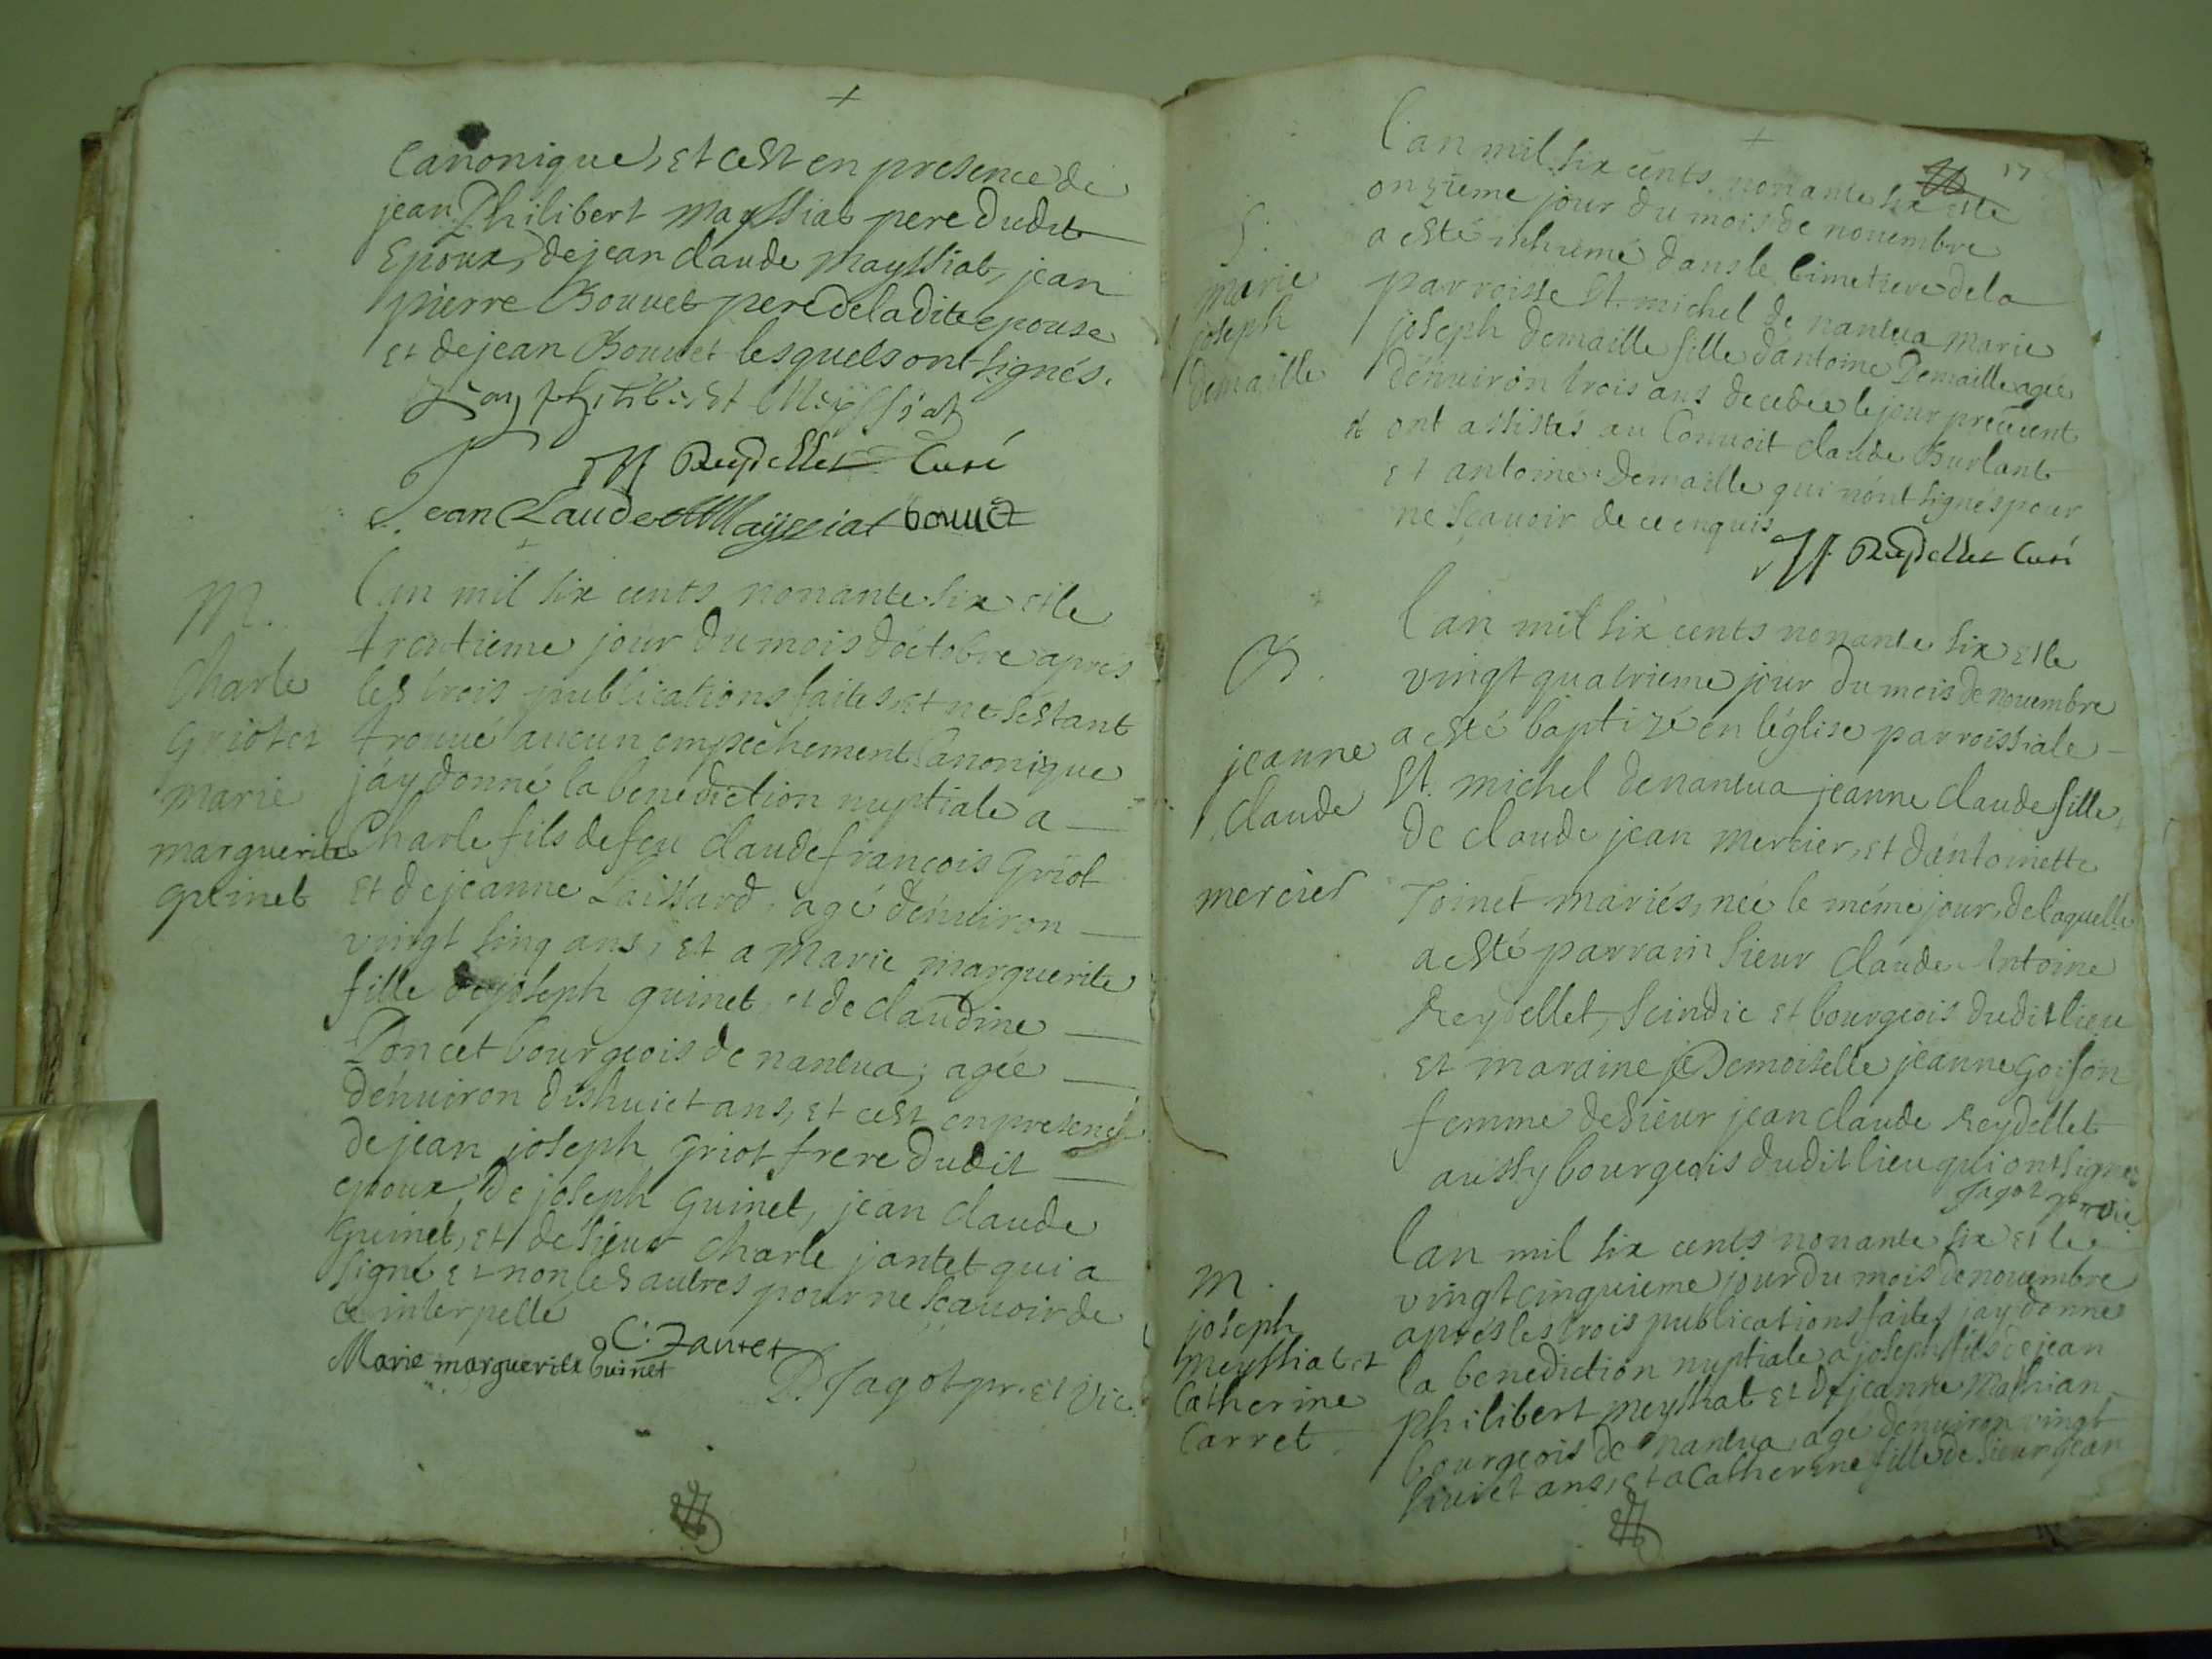 Canonique, et cest en presence de
jean Philibert Mayssiat pere dudit
Epoux, de jean claude Mayssiat, jean
pierre Bouvet pere de la dite epouse
et de jean Bouvet lesquels ont signés.
Jean philibert Meyssiat
JJ Reydellet Curé
Jean Claude Mayssiat bouvet
M.
Charle
Griot et
marie
marguerite
guinet
lan mil six cents nonante six et le
trentieme jour du mois doctobre apres
les trois publications faites, et ne sestant
trouvé aucun empechement Canonique
jay donné la benediction nuptiale a
Charle fils de feu claude françois Griot
et de jeanne Laissard, agé denviron
vingt sinq ans, et a Marie marguerite
fille de joseph guinet, et de claudine
Poncet bourgeois de nantua; agée
denviron dishuict ans, et cest en presence
de jean joseph griot frere dudit
epoux, de joseph guinet, jean claude
guinet, et de sieur charle jantet qui a
signé et non les autres pour ne sçavoir de
ce interpelle
C. Jantet
Marie marguerite Guinet
D. Jagot pr. et vic.
17
S.
marie
joseph
demaille
lan mil six cents nonante six et le
onzieme jour du mois de novembre
a esté inhumé dans le Cimetiere de la
parroisse St. michel de nantua Marie
joseph demaille fille dantoine Demaille agée
denviron trois ans decedée le jour precedent
et ont assistés au Convoit claude Burlant
et antoine Demaille qui nont signés pour
ne sçavoir de ce enquis
JJ. Reydellet Curé
B.
jeanne
Claude
mercier
lan mil six cents nonante six et le
vingt quatrieme jour du mois de novembre
a esté baptizé en léglise parroissiale
St. michel de nantua jeanne claude fille
de claude jean mercier, et dantoinette
Toinet mariés, née le méme jour, de laquelle
a esté parrain sieur claude Antoine
Reydellet, scindic et bourgeois dudit lieu
et maraine Demoiselle jeanne Goison
femme de sieur jean claude Reydellet
aussy bourgeois dudit lieu qui ont signés
Jagot pr. vic
M.
joseph
meyssiat et
Catherine
Carret
lan mil six cents nonante six et le
vingt cinquieme jour du mois de novembre
apres les trois publications faites jay donné
la benediction nuptiale a joseph fils de jean
philibert meyssiat et de jeanne Mathian
bourgeois de nantua, agé denviron vingt
huict ans, et a Catherine fille de sieur jean